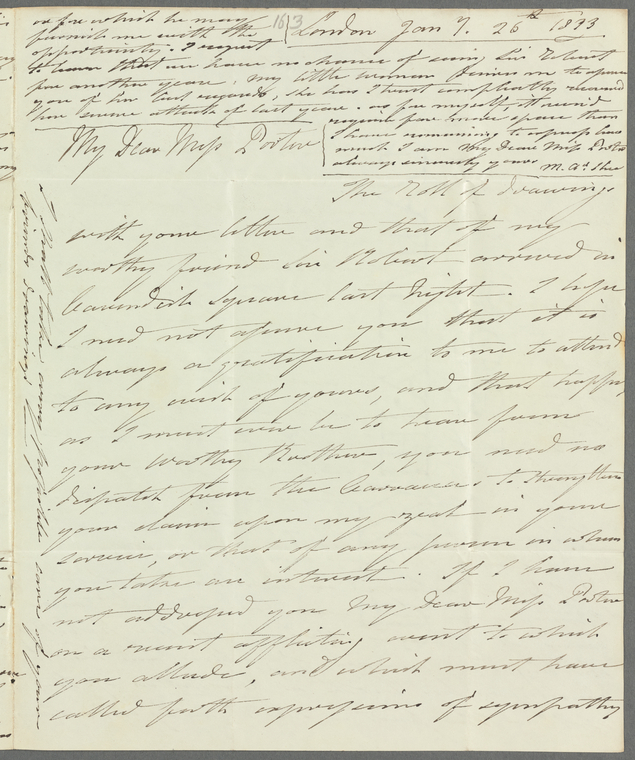 or for which he may
furnish me with the
opportunity. I regret
to learn that we have no chance of seeing Sir Robert
for another year. My little woman desires me to assure
you of her best regards, she has I trust completely recovered
her severe attack of last year. as for myself
require far more space than
I have remaining to express how
much I am My Dear Miss Porter
always sincerely yours
M. A. Shee
163
London Jany. 26th 1833
My Dear Miss Porter
The Roll of drawings
with your letter and that of my
worthy friend Sir Robert arrived in
Cavendish Square last night. I hope
I need not assure you that it is
always a gratification to me to attend
to any wish of yours, and that happy
as I must ever be to hear from
your worthy Brother, you need no
dispatch from the Carraccas to strengthen
your claim upon my zeal in your
service, or that of any person in whom
you take an interest. If I have
not addressed you My Dear Miss Porter
on a recent afflicting event to which
you allude, and which must have
called forth expressions of sympathy
I shall take every possible care of your
drawings